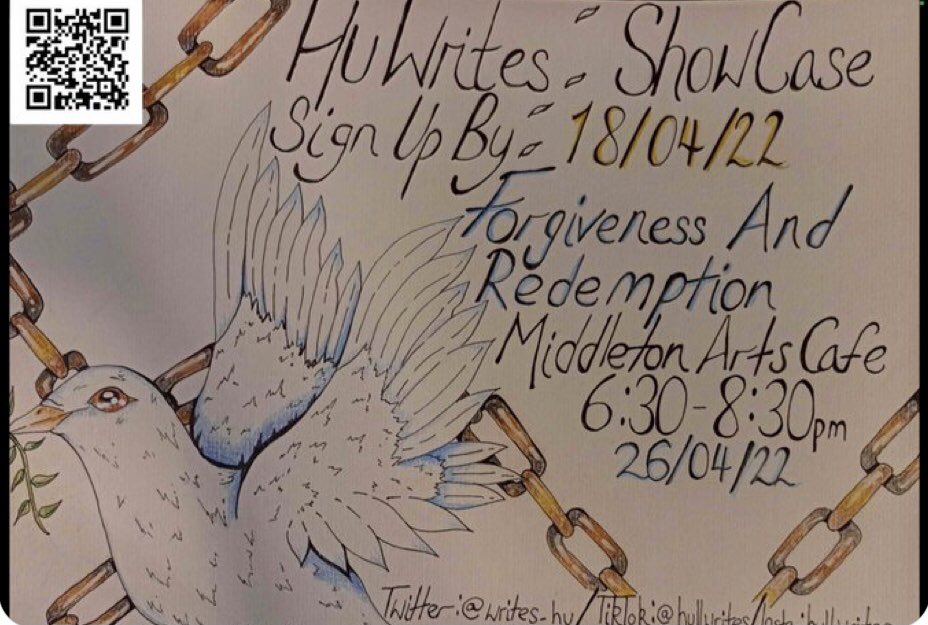 HuWrites: ShowCase
Sign Up By: 18/04/22
Forgiveness And
Redemption
Middleton Arts Cafe
6:30-8:30pm
26/04/22
Twitter:@writes_hu/TikTok:@hullwrites/Insta:hullwrites